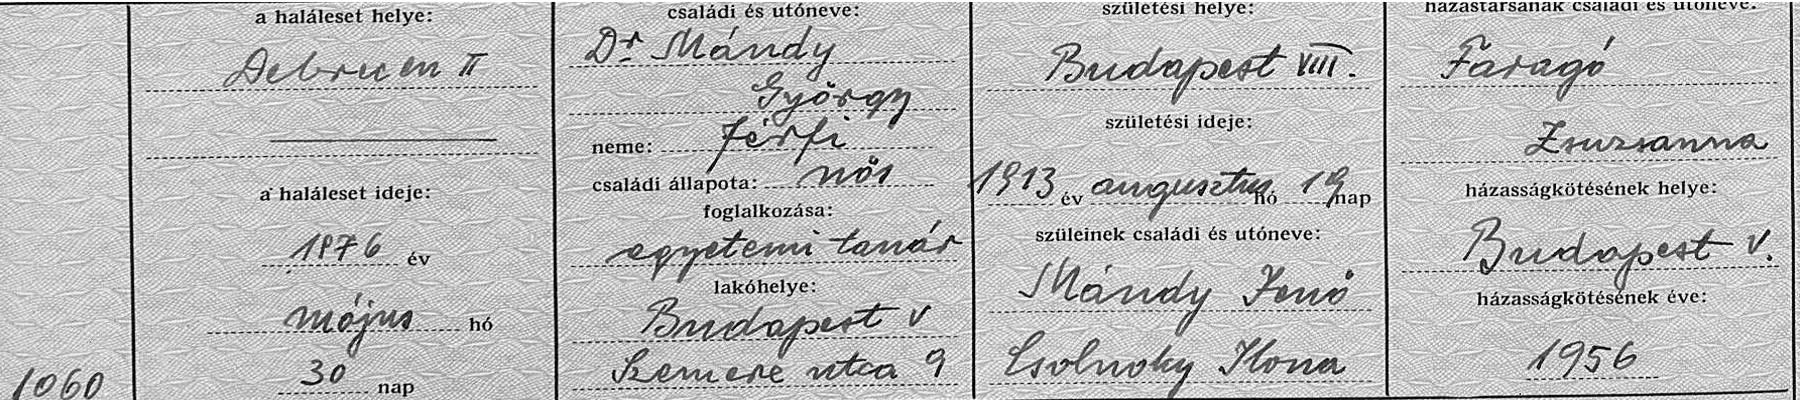 1060
a haláleset helye:
Debrecen II
a haláleset ideje:
1976 év
május hó
30 nap
családi és utóneve:
Dr Mándy
György
neme: férfi
családi állapota: nős
foglalkozása:
egyetemi tanár
lakóhelye:
Budapest V
Szemere utca 9
születési helye:
Budapest VIII.
születési ideje:
1913 év augusztus hó 19 nap
szüleinek családi és utóneve:
Mándy Jenő
Csolnoky Ilona
házastársának családi és utóneve:
Faragó
Zsuzsanna
házasságkötésének helye:
Budapest V.
házasságkötésének éve:
1956